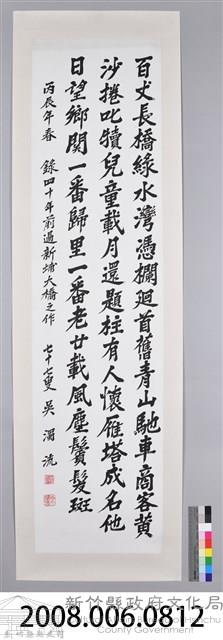 百丈長橋綠水灣憑欄迴首舊青山馳車商客黃
沙捲叱犢兒童載月還題柱有人懷雁塔成名他
日望鄉關一番歸里一番老廿載風塵鬢髮斑
丙辰年春 錄四十年前過新埔大橋之作 七十七叟 吳濁流
新竹縣政府文化局
County Government
2008.006.0812